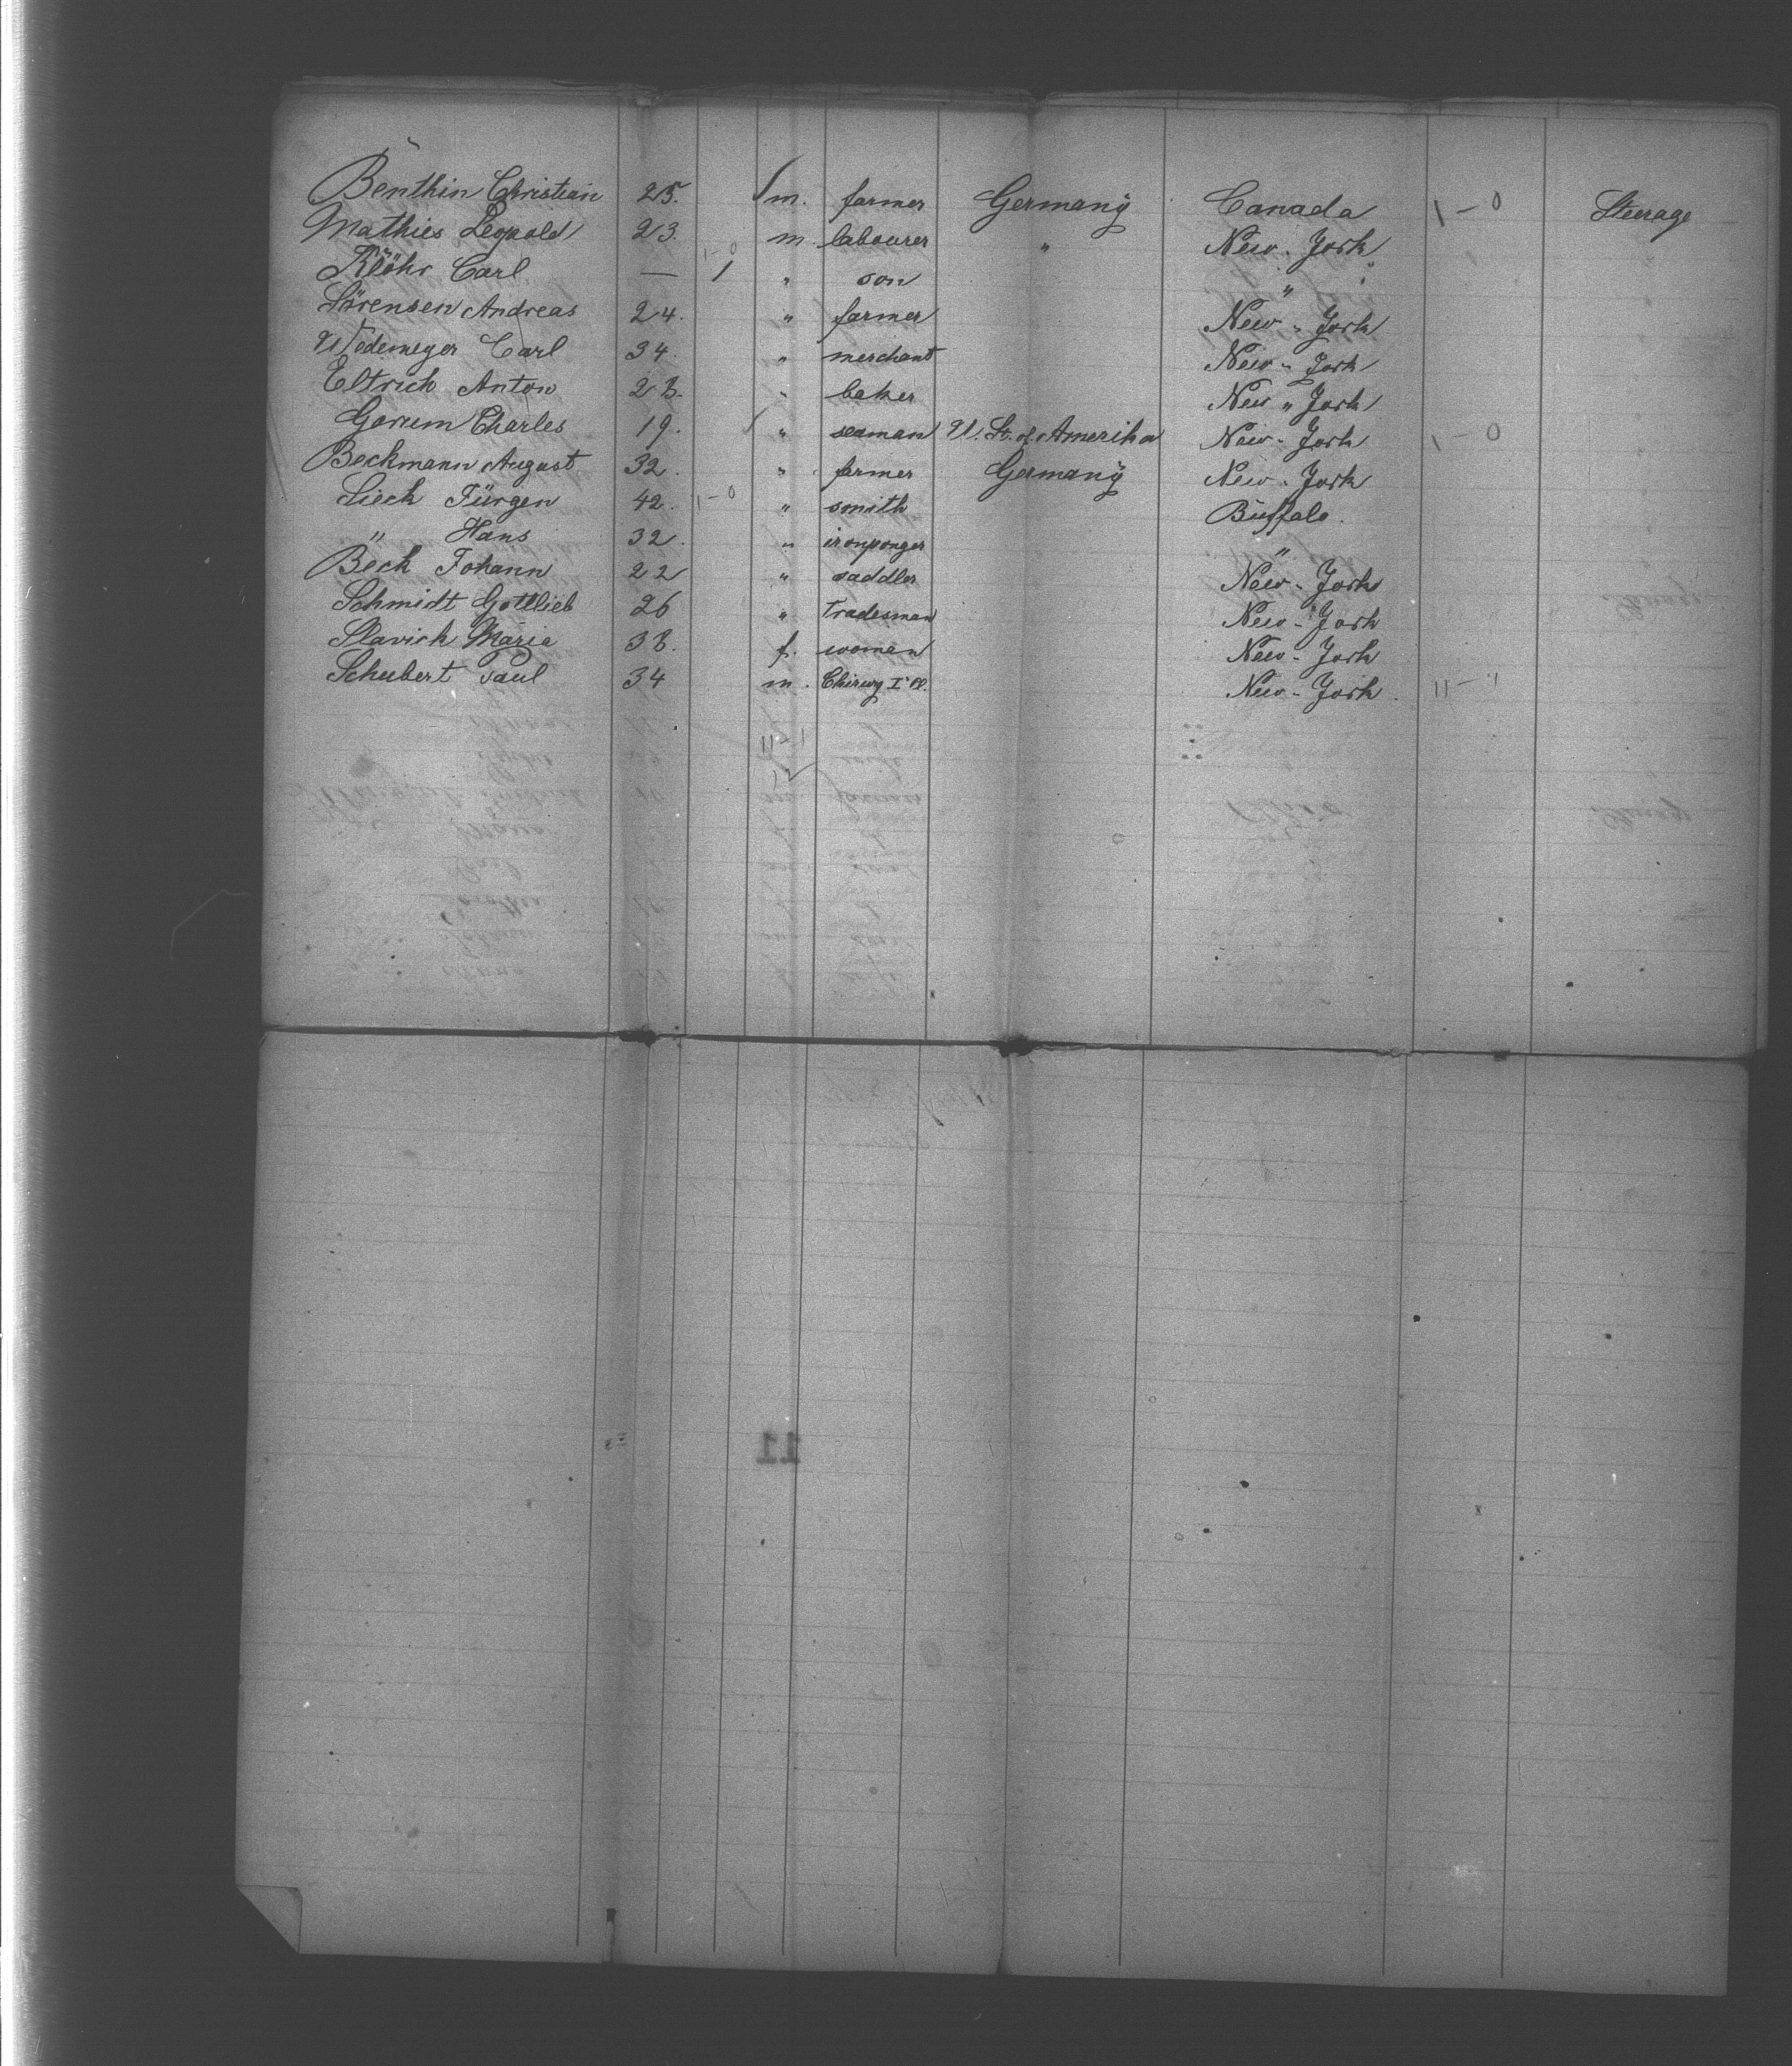 Benthin Christian 25. m. farmer Germany Canada 1-0 Steerage
Mathies Leopold 23. m. labourer " New-York
Klöhr Carl — 1 " son "
Sörensen Andreas 24. " farmer New-York
Wedemeyer Carl 34. " merchant New-York
Eltrich Anton 23. " baker New-York
Gorum Charles 19. " seaman U. St. of Amerika New-York 1-0
Beckmann August 32. " farmer Germany New-York
Sieck Jürgen 42. 1-0 " smith Buffalo.
" Hans 32. " "
Beck Johann 22 " saddler New-York
Schmidt Gottlieb 26 " Tradesman New-York
Slavick Maria 38. f. woman New-York
Schubert Paul 34 m. New-York. 11-1
11-1
11